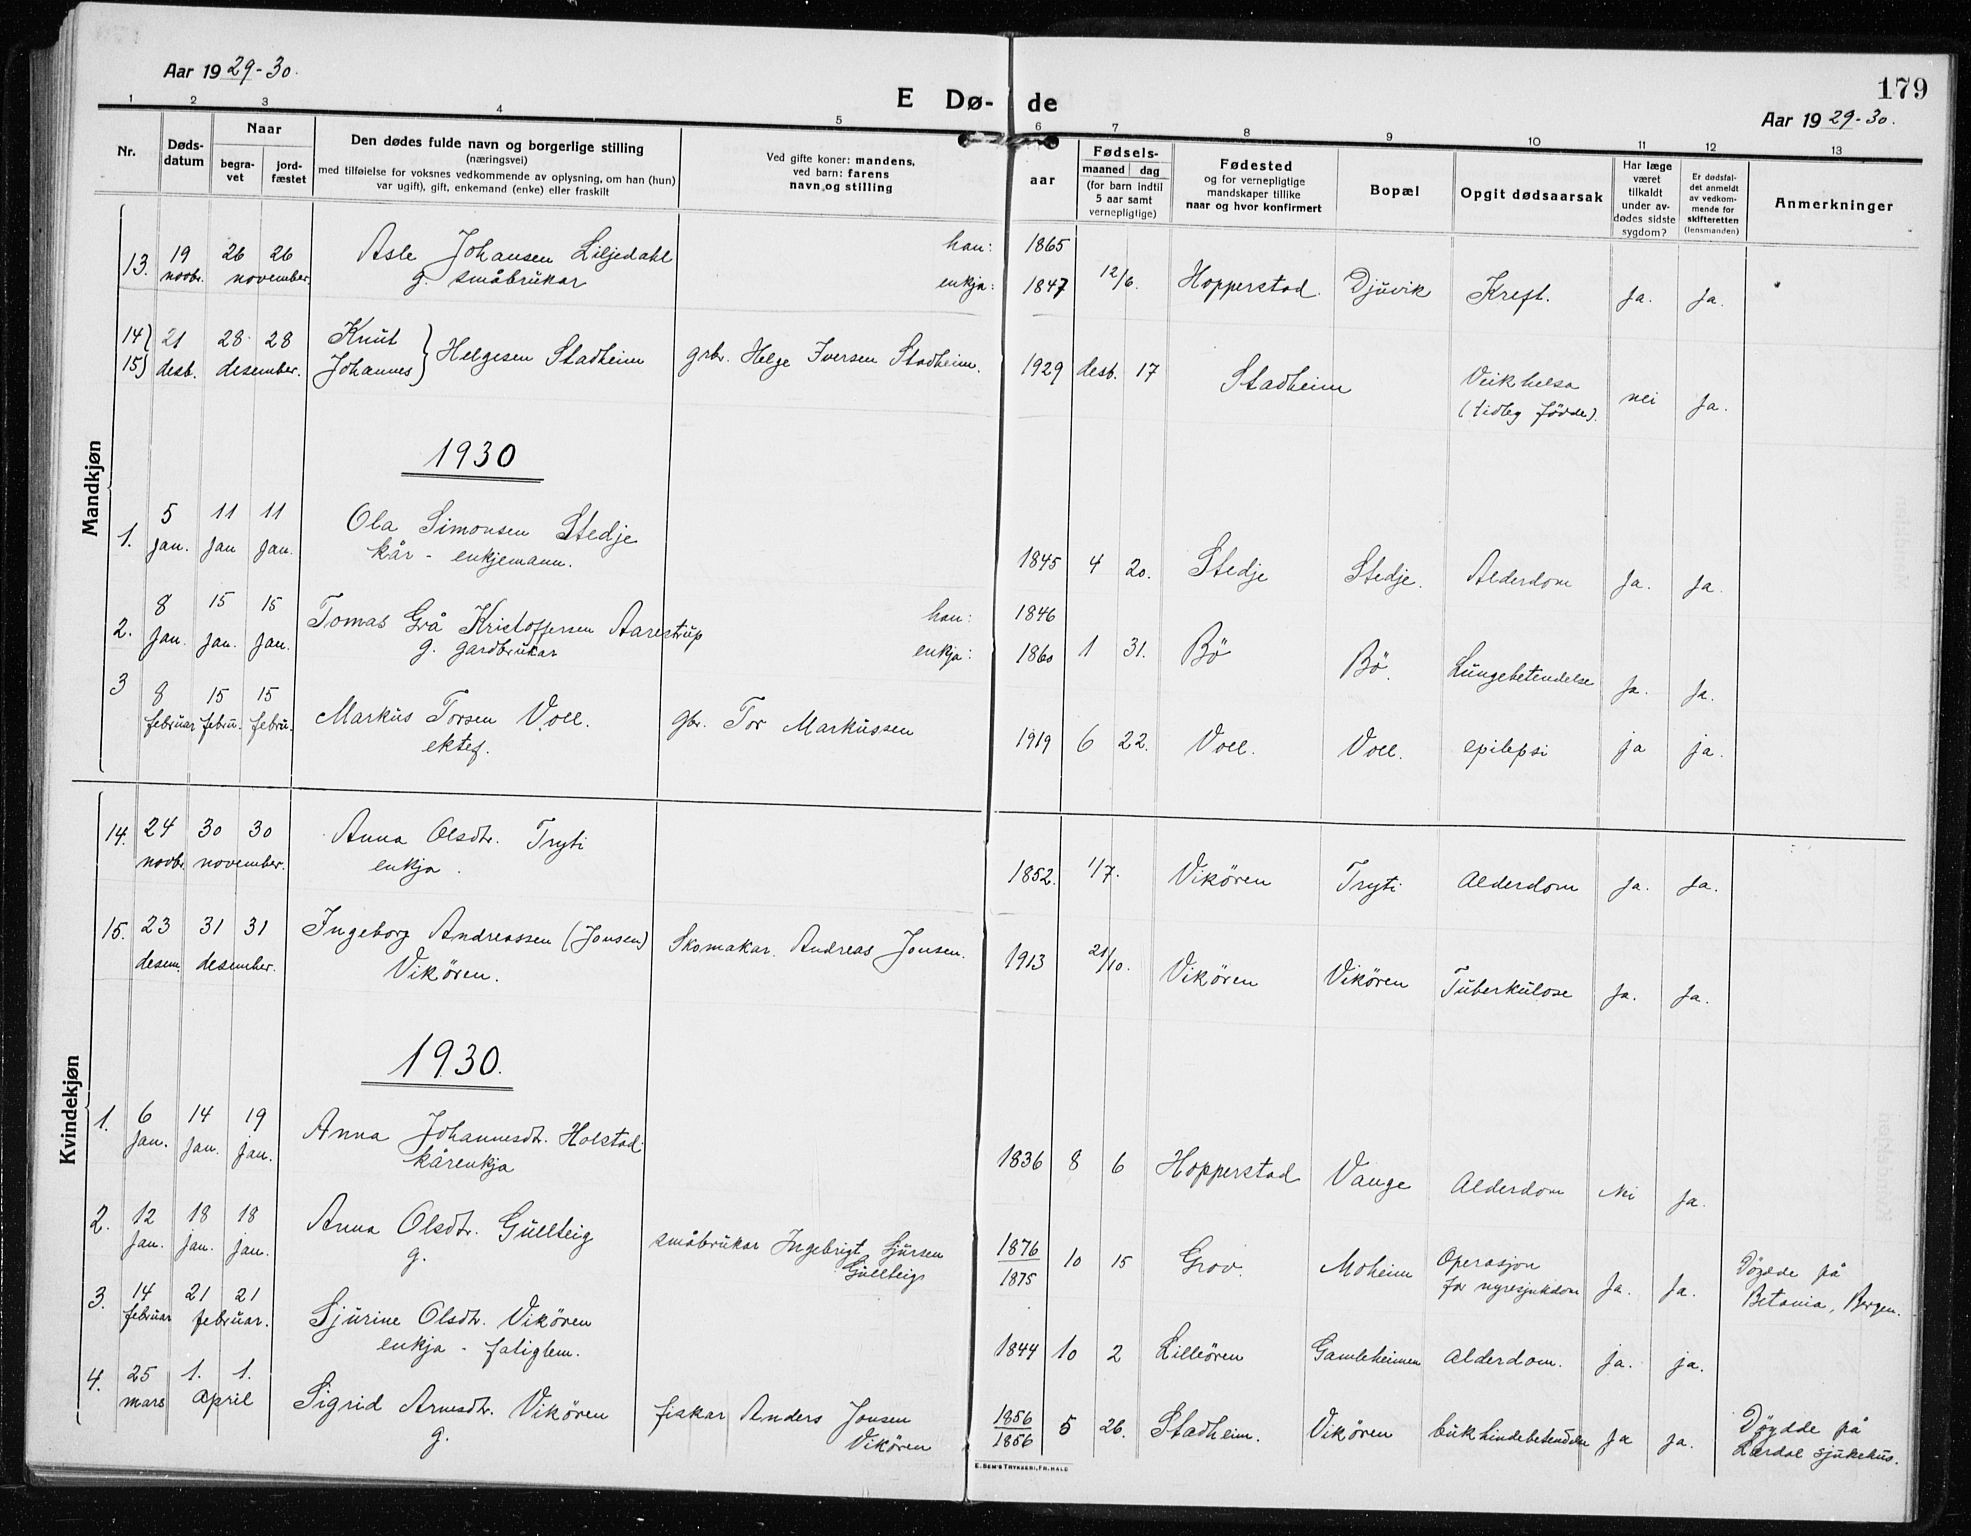 Aar 1929-30.
E Dø- de
179
Aar 1929-30.
1 2 3 4 5 6 7 8 9 10 11 12 13
Nr.
Døds-
datum
Naar
begra-
vet
jord-
fæstet
Den dødes fulde navn og borgerlige stilling
(næringsvei)
med tilføielse for voksnes vedkommende av oplysning, om han (hun)
var ugift), gift, enkemand (enke) eller fraskilt
Ved gifte koner: mandens,
ved barn: farens
navn og stilling
aar
Fødsels-
maaned | dag
(for barn indtil
5 aar samt
vernepligtige)
Fødested
og for vernepligtige
mandskaper tillike
naar og hvor konfirmert
Bopæl
Opgit dødsaarsak
Har læge
været
tilkaldt
under av-
dødes sidste
sygdom?
Er dødsfal-
det anmeldt
av vedkom-
mende for
skifteretten
(lensmanden)
Anmerkninger
Mandkjøn
13. 19 26 26 Asle Johansen Liljedahl han: 1865
novbr. november. g. småbrukar enkja: 1847 12/6. Hopperstad. Djuvik Kreft. Ja. Ja.
14) 21 28 28 Knut
15) desb. desember. Johannes } Helgesen Stadheim grbr. Helge Iversen Stadheim. 1929 desb. 17 Stadheim Veikhelsa nei Ja.
(tidleg fødde).
1930
1. 5 11 11 Ola Simonsen Stedje
jan. jan jan. kår - enkjemann. 1845 4 20. Stedje Stedje. Alderdom Ja. Ja.
2. 8 15 15 Tomas Grå Kristoffersen Aarestrup han: 1846
jan. jan. jan. g. gardbrukar enkja: 1860 1 31. Bø Bø. Lungebetendelse Ja. Ja.
3 8 15 15 Markus Torsen Voll. gbr. Tor Markussen 1919 6 22. Voll. Voll. epilepsi ja ja.
februar febru. febru. ektef.
Kvindekjøn
14. 24 30 30 Anna Olsdtr. Tryti
novbr. november. enkja. 1852. 1/7. Vikören Tryti Alderdom Ja. Ja.
15. 23 31 31 Ingeborg Andreassen (Jonsen) Skomakar. Andreas Jonsen. 1913 21/10. Vikören Vikören Tuberkulose Ja. Ja.
desem. desember. Vikøren.
1930.
1. 6 14 19 Anna Johannesdtr. Holstad
jan. jan. jan. kårenkja 1836 8 6 Hopperstad Vange Alderdom Nei Ja.
2. 12 18 18 Anna Olsdtr. Gullteig småbrukar Ingebrigt Sjursen 1876 10 15 Grov. Moheim Operasjon Ja. Ja. Döyde på
jan. jan. jan. g. Gullteig 1875 for nyresjukdom Betania, Bergen.
3. 14 21 21 Sjurine Olsdtr. Vikören
februar februar. enkja - fatiglem. 1844 10 2 Lilleören Gamleheimen Alderdom. ja. ja.
4. 25 1. 1. Sigrid Arnesdtr. Vikören fiskar Anders Jonsen 1856 5 26. Stadheim. Vikören bukhindebetendelse Ja ja. Döydde på
mars April g. Vikören 1856 Lærdal sjukehus.
E. SEM'S TRYKKERI, FR.HALD